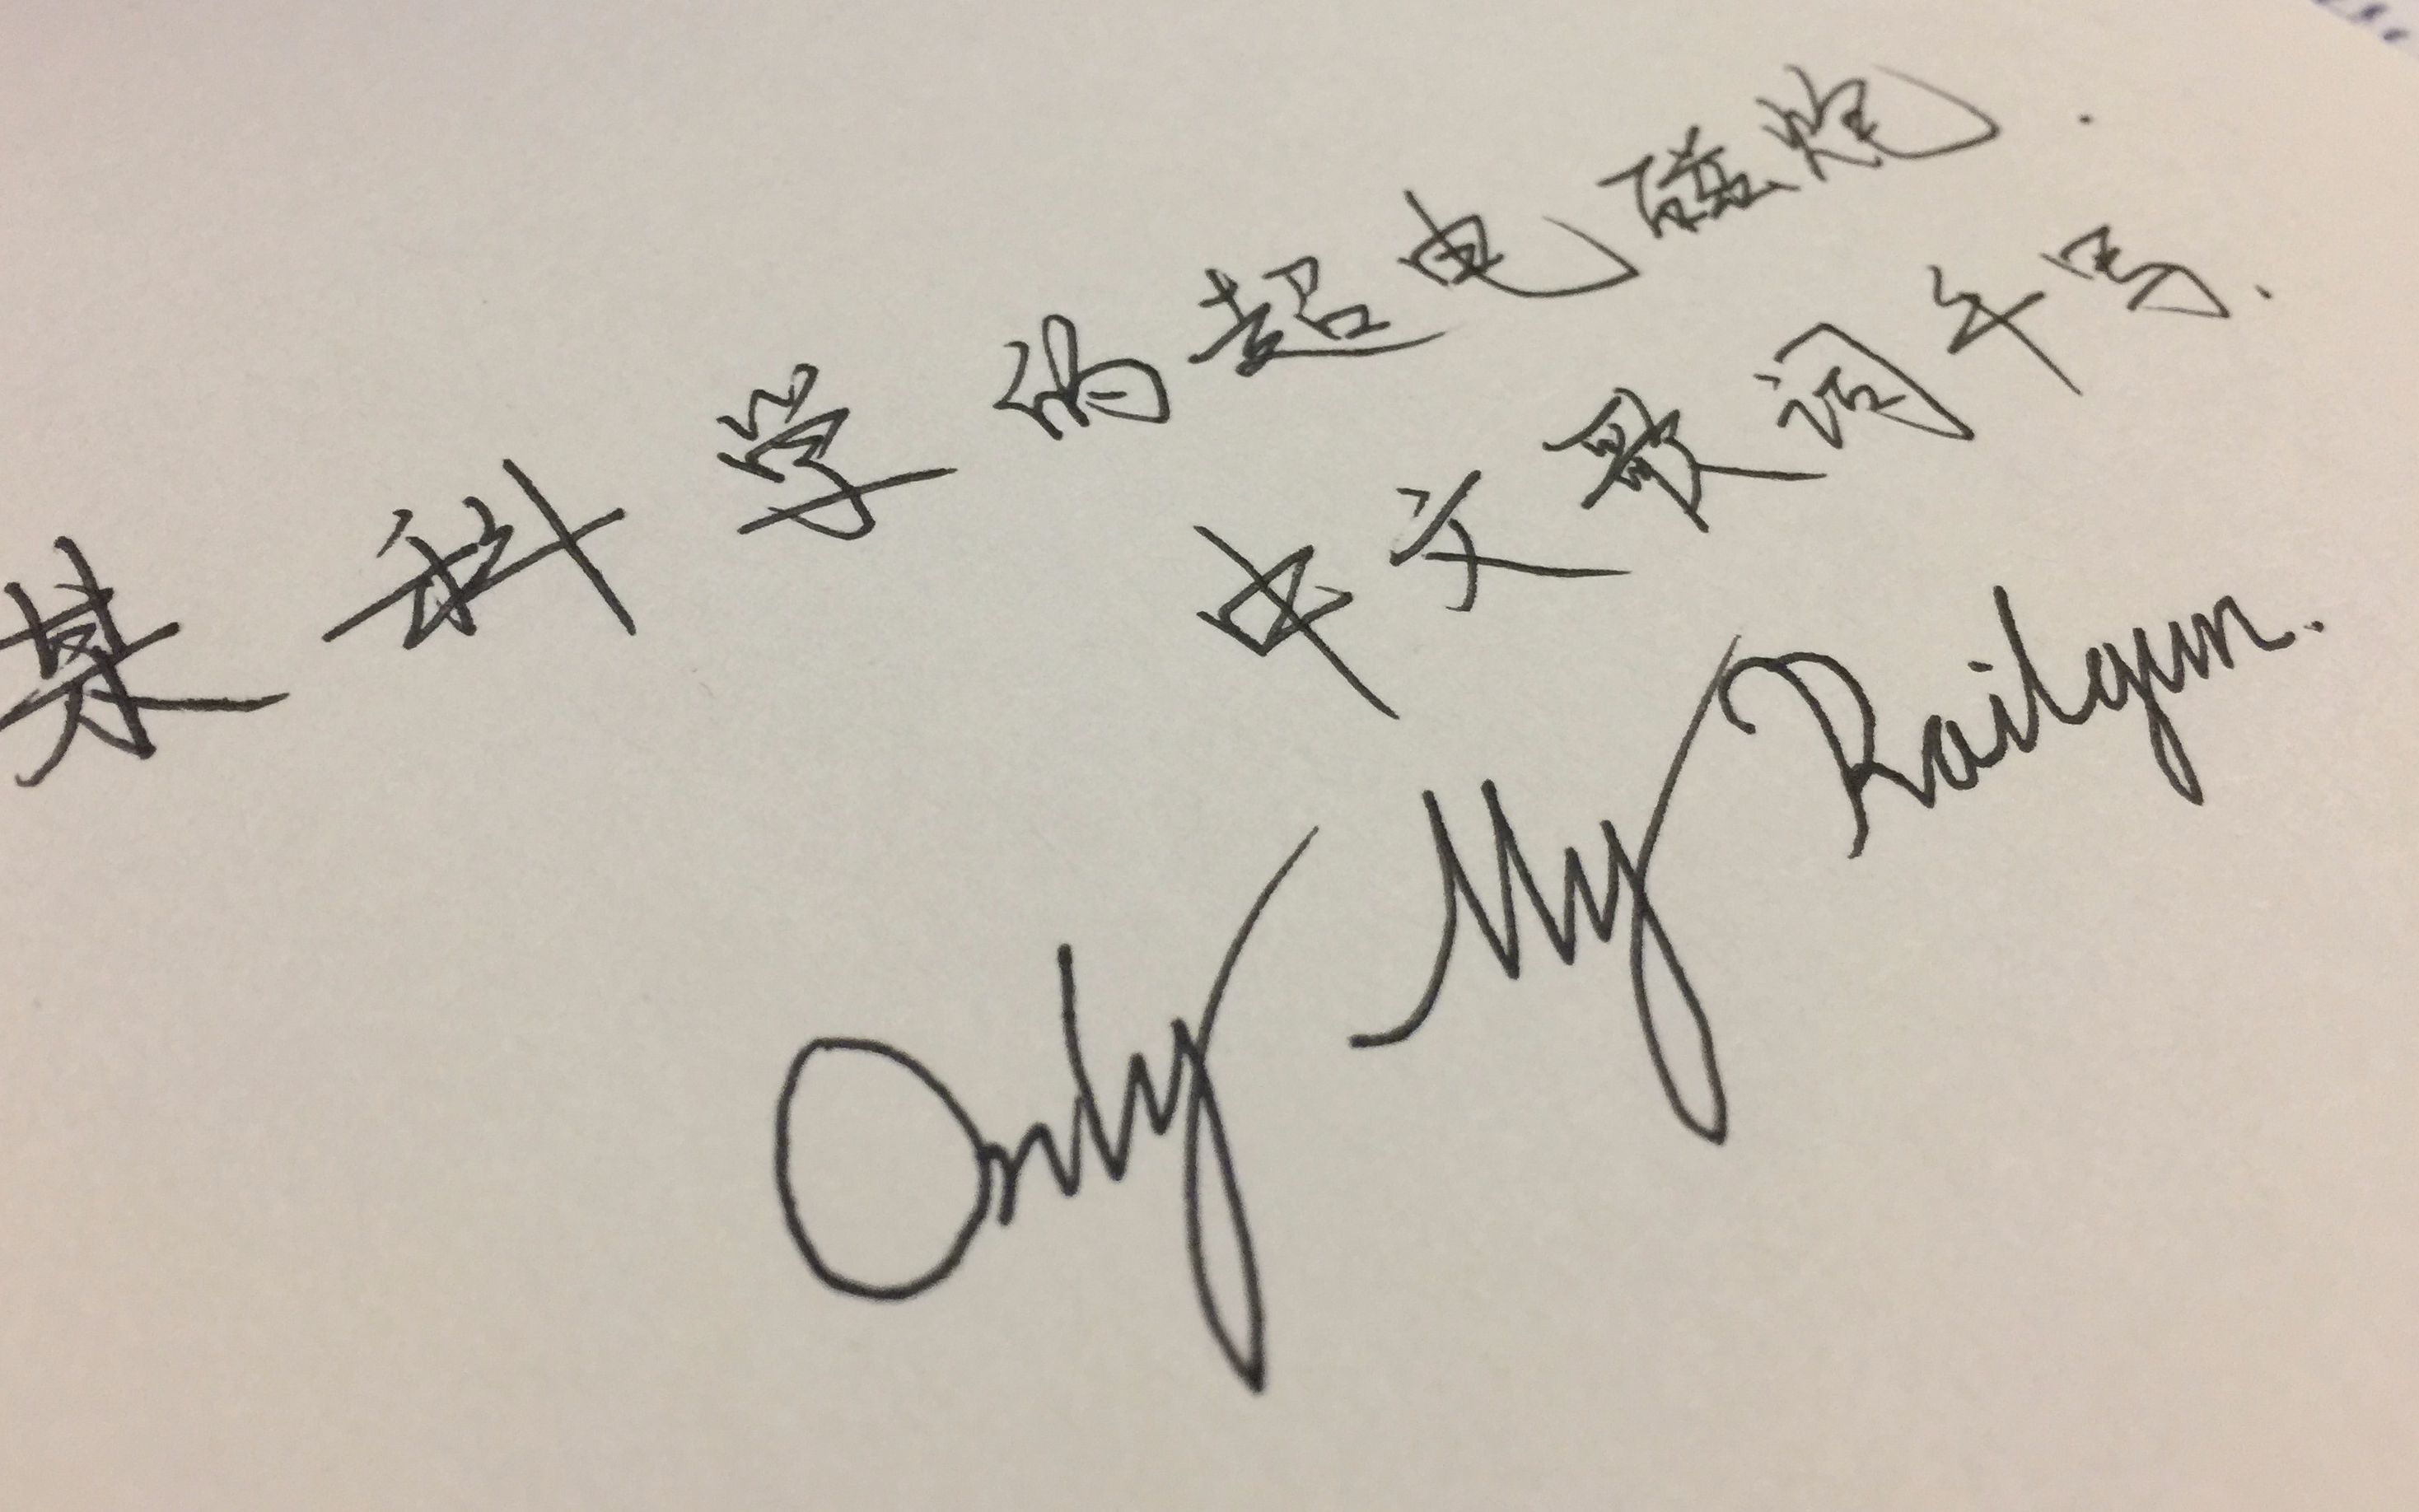 某科学的超电磁炮.
中文歌词手写.
Only My Railgun.